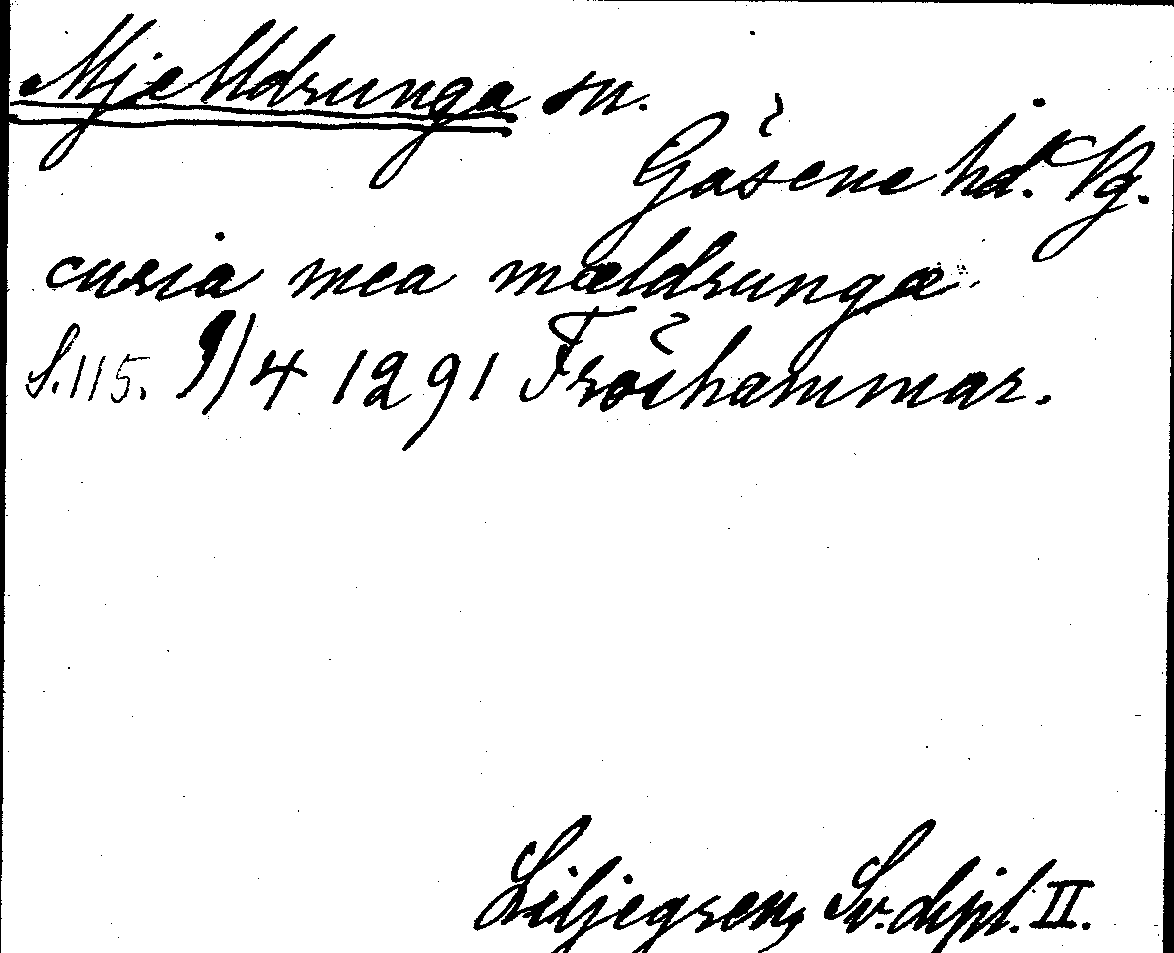 Mjelldrunga sn.
Gäsene hd. Vg.
curia mea mældrungæ
S.115. 9/4 1291 Fröihammar.
Liljegren, Sv. dipl. II.